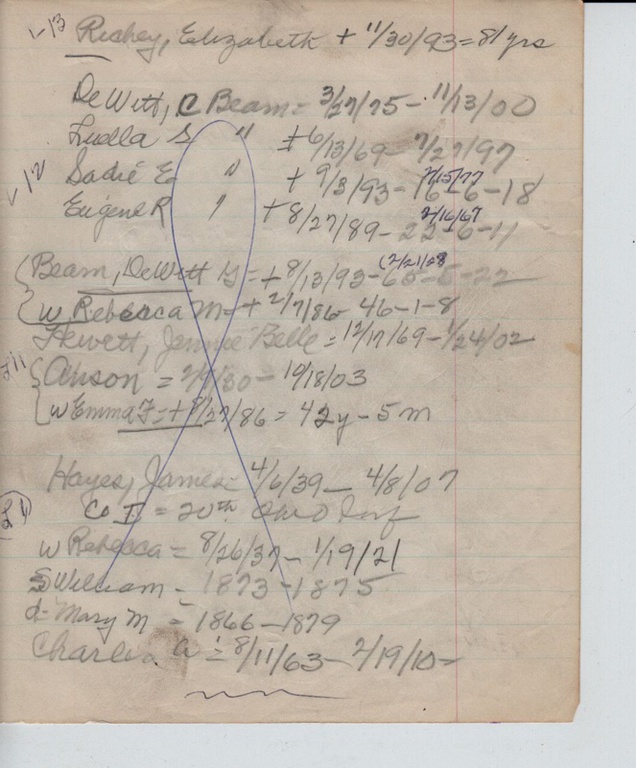 1-13 Richey, Elizabeth + 11/30/93 = 81 yrs
DeWitt, C Beam = 3/27/75 - 11/13/00
Luella S " + 6/13/69 - 7/27/97
7/15/77
1-12 Sadie E " + 9/3/93 - 16-6-18
2/16/67
Eugene R " + 8/27/89 - 22-6-11
(2/21/28
Beam, DeWitt G = + 8/13/93 - 65-5-22
w Rebecca M = + 2/7/86 46-1-8
Hewett, Jennie Belle = 12/17/69 - 1/24/02
Anson = 80 - 10/18/03
w Emma F = + /27/86 = 42y - 5m
Hayes, James = 4/6/39 - 4/8/07
Co I = 20th Ohio Inf
w Rebecca = 8/26/37 - 1/19/21
S William - 1873 - 1875
d - Mary M = 1866 - 1879
Charles A = 8/11/63 - 2/19/10 -